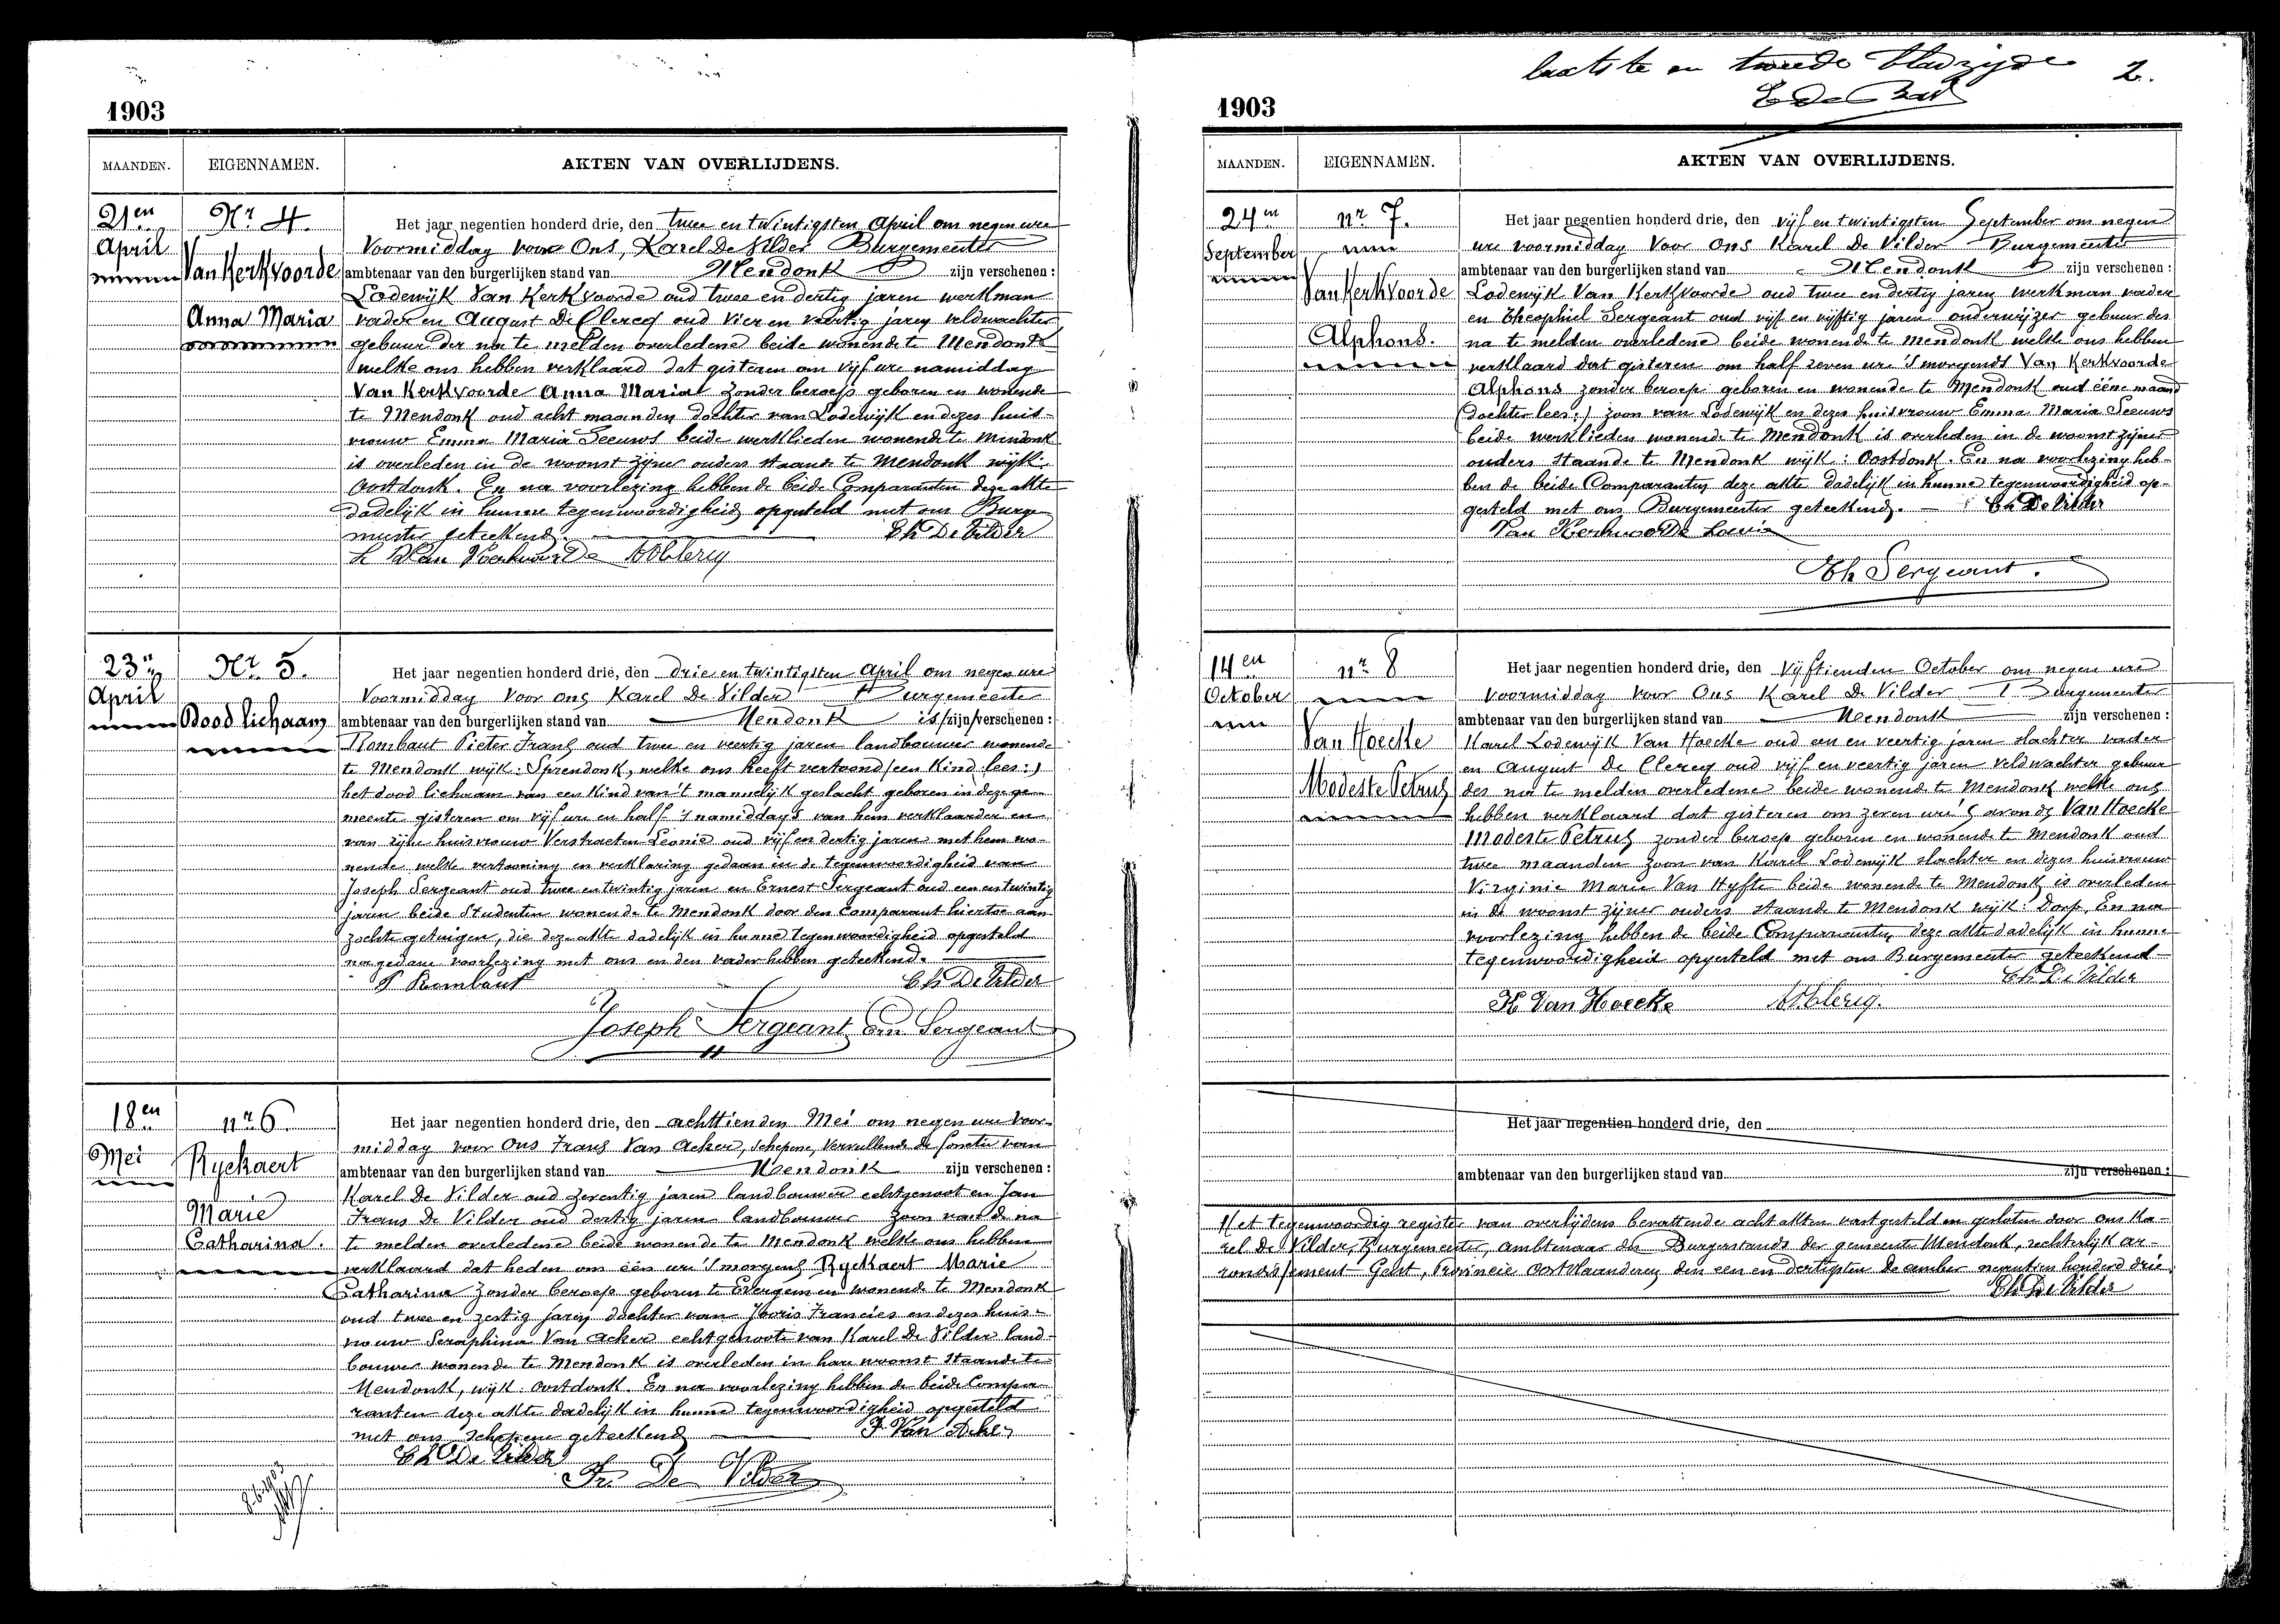 1903
MAANDEN. EIGENNAMEN. AKTEN VAN OVERLIJDENS.
21en April
Nr 4.
Van Kerkvoorde
Anna Maria
Het jaar negentien honderd drie, den twee en twintigsten April om negen ure
Voormidday voor Ons, Karel De Vilder Burgemeester
ambtenaar van den burgerlijken stand van Mendonk zijn verschenen :
Lodewijk Van Kerkvoorde oud twee en dertig jaren werkman
vader en August De Clercq oud vier en veertig jaren veldwachter
gebuur der na te melden overledene beide wonende te Mendonk
welke ons hebben verklaard dat gisteren om vijf ure namiddag
Van Kerkvoorde Anna Maria zonder beroep geboren en wonende
te Mendonk oud acht maanden dochter van Lodewijk en dezes huis-
vrouw Emma Maria Seeuws beide werklieden wonende te Mendonk
is overleden in de woonst zijner ouders staande te Mendonk wijk:
Oostdonk. En na voorlezing hebben de beide Comparanten deze akte
dadelijk in hunne tegenwoordigheid opgesteld met ons Burge
meester geteekend. Ch De Vilder
L Van Kerkvoorde A De Clercq
23en April
Nr 5.
Dood lichaam
Het jaar negentien honderd drie, den drie en twintigsten April om negen ure
Voormidday voor ons Karel De Vilder Burgemeester
ambtenaar van den burgerlijken stand van Mendonk is/zijn/verschenen :
Rombaut Pieter Frans oud twee en veertig jaren landbouwer wonende
te Mendonk wijk: Sprendonk, welke ons heeft vertoond (een Kind lees:)
het dood lichaam van een Kind van 't mannelijk geslacht geboren in deze ge-
meente gisteren om vijf ure en half 's namiddags van hem verklaarder en
van zijne huisvrouw Verstraeten Leonie oud vijf en dertig jaren met hem wo-
nende welke vertooning en verklaring gedaan in de tegenwoordigheid van
Joseph Sergeant oud twee en twintig jaren en Ernest Sergeant oud een en twintig
jaren beide Studenten wonende te Mendonk door den Comparant hiertoe aan
zochte getuigen, die deze akte dadelijk in hunne tegenwoordigheid opgesteld
na gedane voorlezing met ons en den vader hebben geteekend.
P Rombaut Ch De Vilder
Joseph Sergeant Ern Sergeant
18en Mei
nr 6
Ryckaert
Marie
Catharina.
Het jaar negentien honderd drie, den achttienden Mei om negen ure voor-
midday voor Ons Frans Van Acker, schepene, vervullende de functie van
ambtenaar van den burgerlijken stand van Mendonk zijn verschenen :
Karel De Vilder oud zeventig jaren landbouwer echtgenoot en Jan
Frans De Vilder oud dertig jaren landbouwer zoon van de na
te melden overledene beide wonende te Mendonk welke ons hebben
verklaard dat heden om één ure 's morgens Ryckaert Marie
Catharina zonder beroep geboren te Evergem en wonende te Mendonk
oud twee en zestig jaren dochter van Jooris Francies en dezes huis-
vrouw Seraphina Van Acker echtgenoote van Karel De Vilder land-
bouwer wonende te Mendonk is overleden in hare woonst staande te
Mendonk, wijk: Oostdonk. En na voorlezing hebben de beide Compa-
ranten deze akte dadelijk in hunne tegenwoordigheid opgesteld
met ons Schepene geteekend F Van Acker
Ch De Vilder
Fr. De Vilder
laatste en tweede bladzijde 2.
1903
MAANDEN. EIGENNAMEN. AKTEN VAN OVERLIJDENS.
24en September
nr 7.
Van Kerkvoorde
Alphons.
Het jaar negentien honderd drie, den vijf en twintigsten September om negen
ure voormidday Voor Ons Karel De Vilder Burgemeester
ambtenaar van den burgerlijken stand van Mendonk zijn verschenen :
Lodewijk Van Kerkvoorde oud twee en dertig jaren werkman vader
en Theophiel Sergeant oud vijf en vijftig jaren onderwijzer gebuur des
na te melden overledene beide wonende te Mendonk welke ons hebben
verklaard dat gisteren om half zeven ure 's morgends Van Kerkvoorde
Alphons zonder beroep geboren en wonende te Mendonk oud ééne maand
(dochter lees:) zoon van Lodewijk en dezes huisvrouw Emma Maria Seeuws
beide werklieden wonende te Mendonk is overleden in de woonst zijner
ouders staande te Mendonk wijk: Oostdonk. En na voorlezing heb-
ben de beide Comparanten deze akte dadelijk in hunne tegenwoordigheid op-
gesteld met ons Burgemeester geteekend. Ch De Vilder
Van Kerkvoorde Lowie
Th Sergeant.
14en October
nr 8
Van Hoecke
Modeste Petrus
Het jaar negentien honderd drie, den Vijftienden October om negen ure
voormidday voor Ons Karel De Vilder Burgemeester
ambtenaar van den burgerlijken stand van Mendonk zijn verschenen :
Karel Lodewijk Van Hoecke oud een en veertig jaren slachter vader
en August De Clercq oud vijf en veertig jaren veldwachter gebuur
des na te melden overledene beide wonende te Mendonk welke ons
hebben verklaard dat gisteren om zeven ure 's avonds Van Hoecke
Modeste Petrus zonder beroep geboren en wonende te Mendonk oud
twee maanden zoon van Karel Lodewijk slachter en dezes huisvrouw
Virginie Marie Van Hyfte beide wonende te Mendonk is overleden
in de woonst zijner ouders staande te Mendonk wijk: Dorp. En na
voorlezing hebben de beide Comparanten deze akte dadelijk in hunne
tegenwoordigheid opgesteld met ons Burgemeester geteekend
Ch De Vilder
K Van Hoecke A De Clercq.
Het jaar negentien honderd drie, den
ambtenaar van den burgerlijken stand van zijn verschenen :
Het tegenwoordig register van overlijdens bevattende acht akten vast gesteld en gesloten door ons Ka-
rel De Vilder, Burgemeester, ambtenaar des Burgerstands der gemeente Mendonk, rechterlijk ar-
rondissement Gent, Provincie Oostvlaanderen den een en dertigsten December negentien honderd drie
Ch De Vilder